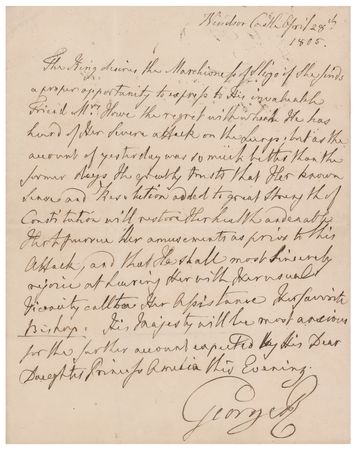 Windsor Castle April 28th
1805.
The King desires the Marchioness of Sligo if she finds
a proper opportunity to express to His invaluable
Friend Mrs Howe the regret with which He has
heard of Her severe attack on the Lungs, but as the
account of yesterday was so much better than the
former days He greatly trusts that Her known
sense and Resolution added to great strength of
Constitution will restore Her health and enable
Her to pursue Her amusements as prior to this
Attack, and that He shall most sincerely
rejoice at hearing Her with Her usual
Vivacity call to Her Assistance Her favorite
Bishop. His Majesty will be most anxious
for the further account expected by His Dear
Daughter Princess Amelia this Evening.
George R